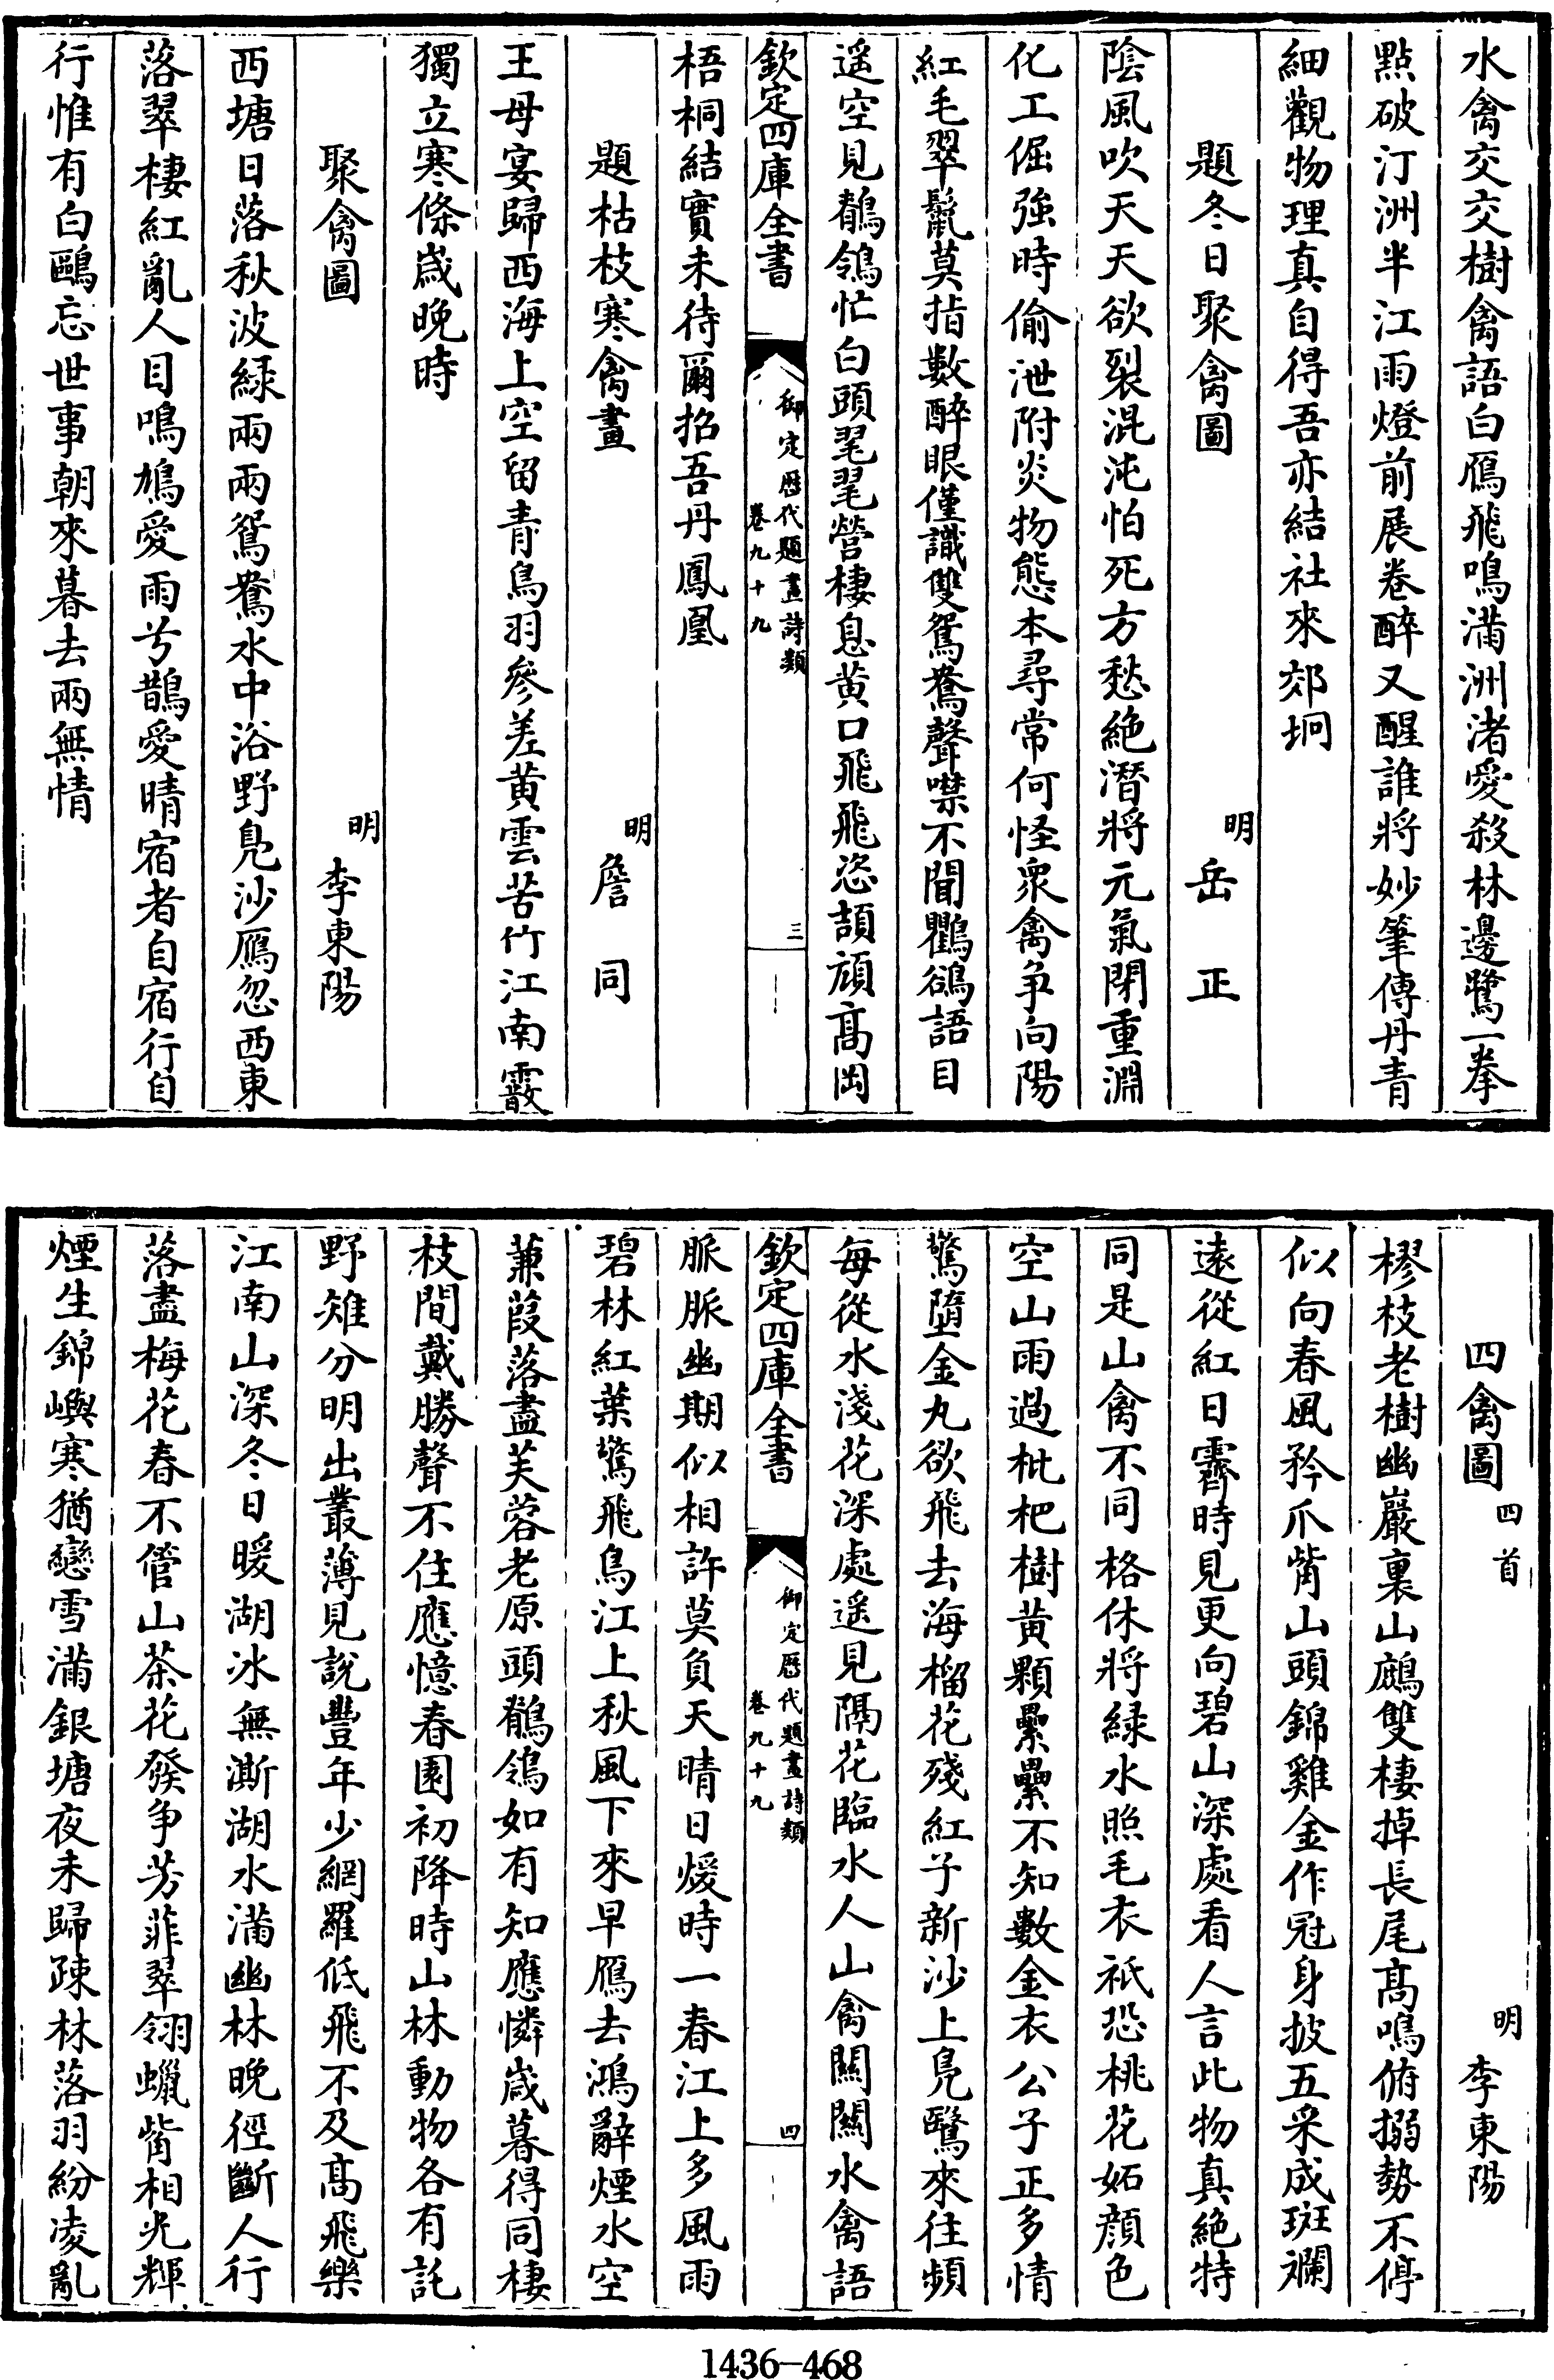 水禽交交樹禽語白鴈飛鳴滿洲渚愛殺林邊鷺一拳
點破汀洲半江雨燈前展卷醉又醒誰將妙筆傳丹青
細觀物理真自得吾亦結社來郊坰
題冬日聚禽圖
明
岳正
陰風吹天天欲裂混沌怕死方愁絶潛將元氣閉重淵
化工倔強時偷泄附炎物態本尋常何怪衆禽爭向陽
紅毛翠鬣莫指數醉眼僅識雙鴛鴦聲噤不聞鸜鵒語目
遥空見鶺鴒忙白頭毣毣營棲息黄口飛飛恣頡頏髙岡
欽定四庫全書
御定歷代題畫詩類
卷九十九
三
梧桐結實未待爾招吾丹鳳凰
題枯枝寒禽畫
明
詹同
王母宴歸西海上空留青鳥羽參差黄雲苦竹江南霰
獨立寒條歲晚時
聚禽圖
明
李東陽
西塘日落秋波緑兩兩鴛鴦水中浴野鳬沙鴈忽西東
落翠棲紅亂人目鳴鳩愛雨兮鵲愛晴宿者自宿行自
行惟有白鷗忘世事朝來暮去兩無情
四禽圖
四首
明
李東陽
樛枝老樹幽巖裏山鷓雙棲掉長尾髙鳴俯搦勢不停
似向春風矜爪觜山頭錦雞金作冠身披五采成斑斕
遠從紅日霽時見更向碧山深處看人言此物真絶特
同是山禽不同格休將緑水照毛衣祇恐桃花妬顔色
空山雨過枇杷樹黄顆纍纍不知數金衣公子正多情
驚墮金丸欲飛去海榴花殘紅子新沙上鳬鷖來往頻
每從水淺花深處遥見隔花臨水人山禽闗闗水禽語
欽定四庫全書
御定歷代題畫詩類
卷九十九
四
脈脈幽期似相許莫負天晴日煖時一春江上多風雨
碧林紅葉驚飛鳥江上秋風下來早鴈去鴻辭煙水空
蒹葭落盡芙蓉老原頭鶺鴒如有知應憐歲暮得同棲
枝間戴勝聲不住應憶春園初降時山林動物各有託
野雉分明出叢薄見説豐年少網羅低飛不及髙飛樂
江南山深冬日暖湖冰無澌湖水滿幽林晚徑斷人行
落盡梅花春不管山茶花發爭芳菲翠翎蠟觜相光輝
煙生錦嶼寒猶戀雪滿銀塘夜未歸疎林落羽紛凌亂
1436-468